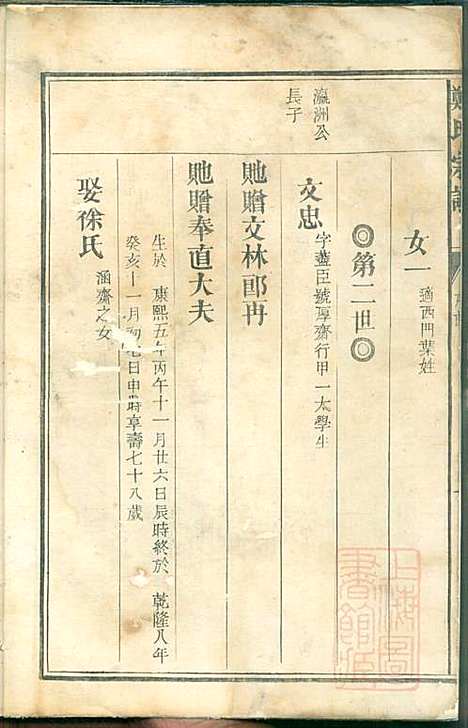 鄭氏宗譜
女一
適西門葉姓
◎第二世◎
瀛洲公
長子
文忠
字藎臣號厚齋行甲一太學生
貤贈文林郎再
貤贈奉直大夫
生於 康熙五年丙午十一月廿六日辰時終於 乾隆八年
癸亥十一月初九日申時享壽七十八歲
娶徐氏
涵齋之女
上海圖書館藏